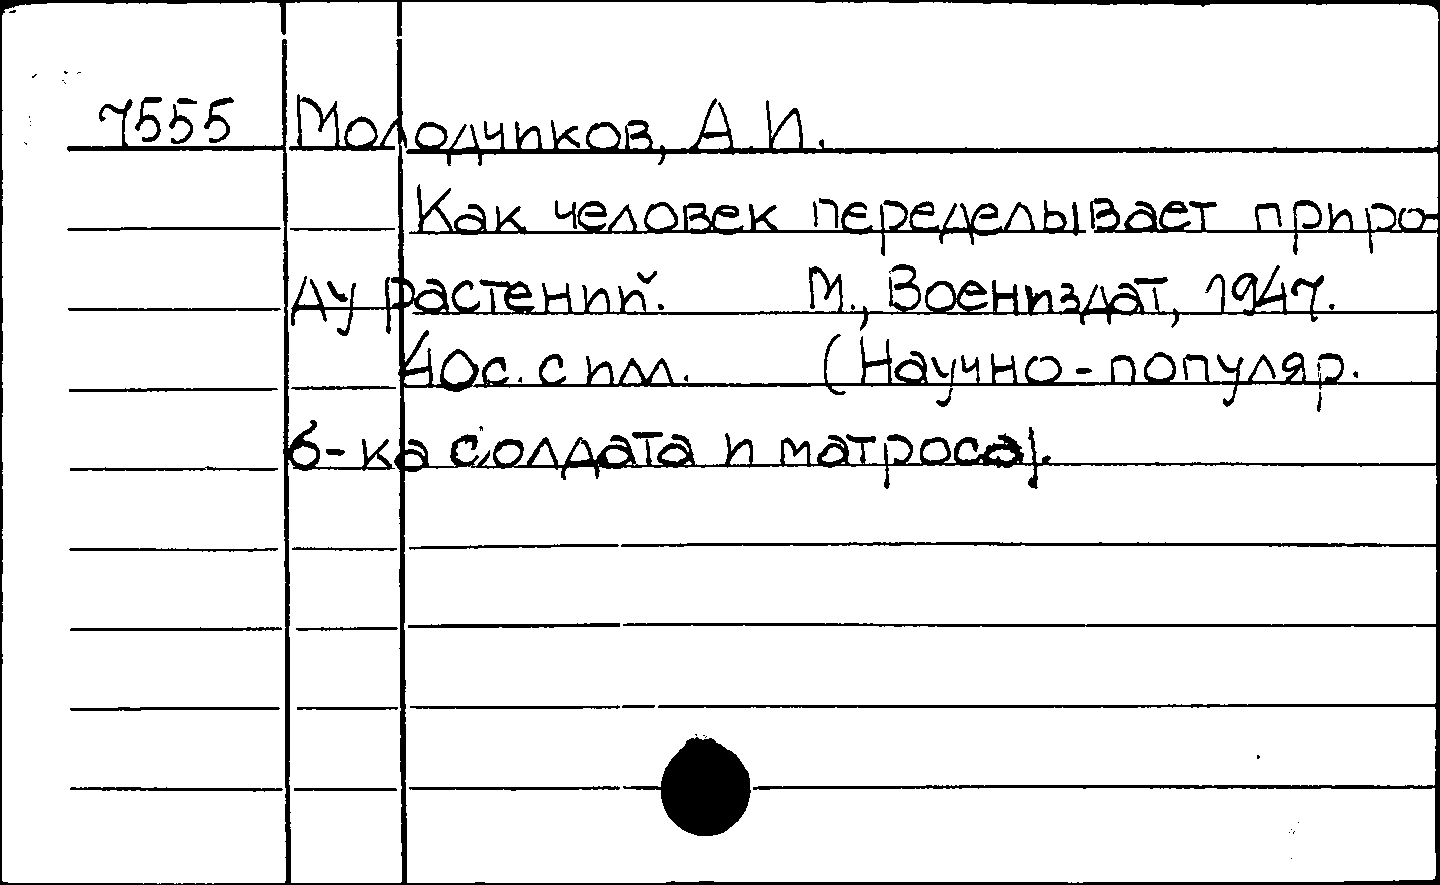 7555 Молодчиков, А.И.
Как человек переделывает приро-
ду растений. М., Воениздат, 1947.
40с. с ил. (Научно-популяр.
б-ка солдата и матроса).